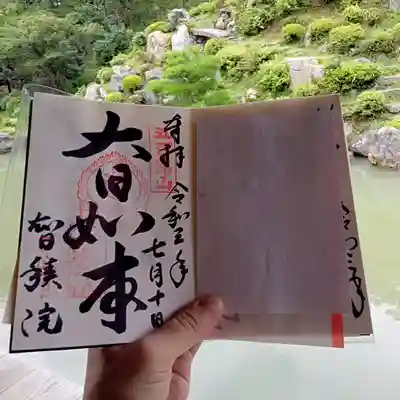 奉拝 令和三年
七月十日
大日如来
智積院